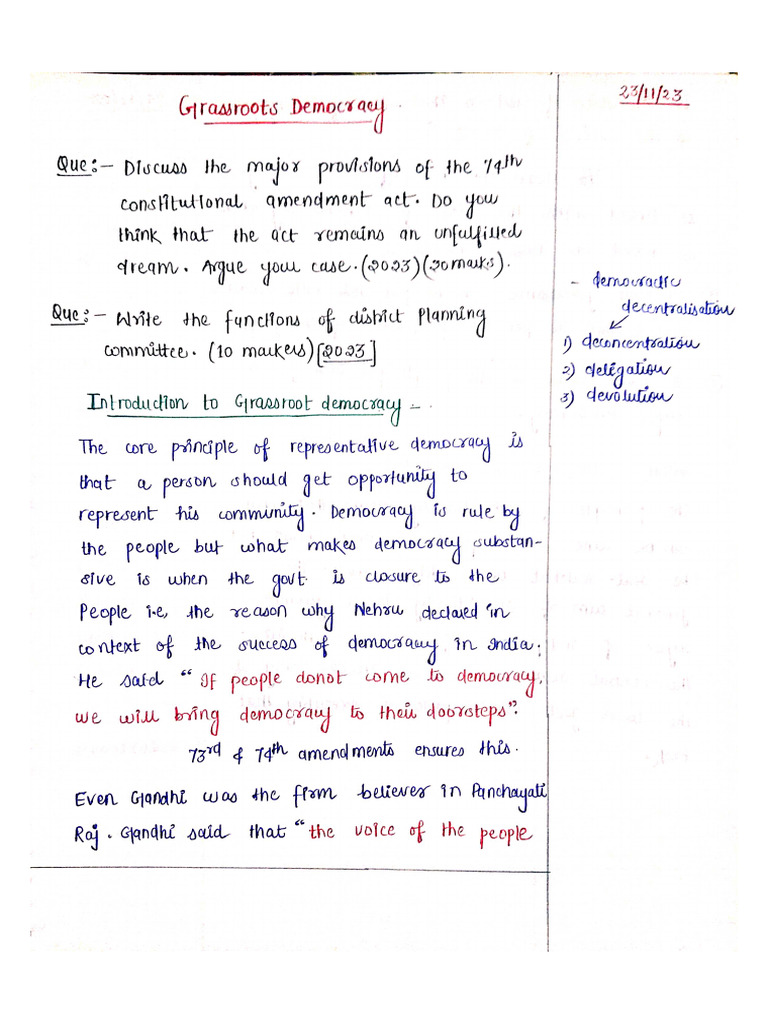 Grassroots Democracy.
23/11/23
Que:- Discuss the major provisions of the 74th
constitutional amendment act. Do you
think that the act remains an unfulfilled
dream. Argue your case. (2023) (20 marks).
Que:- Write the functions of district planning
committee. (10 markers) [2023]
Introduction to Grassroot democracy -
The core principle of representative democracy is
that a person should get opportunity to
represent his community. Democracy is rule by
the people but what makes democracy substan-
sive is when the govt is closure to the
People i.e, the reason why Nehru declared in
context of the success of democracy in India.
He said "If people donot come to democracy,
we will bring democracy to their doorsteps".
73rd & 74th amendments ensures this.
Even Gandhi was the firm believer in Panchayati
Raj. Gandhi said that "the voice of the people
- democradic
decentralisation
1) deconcentration
2) delegation
3) devolution